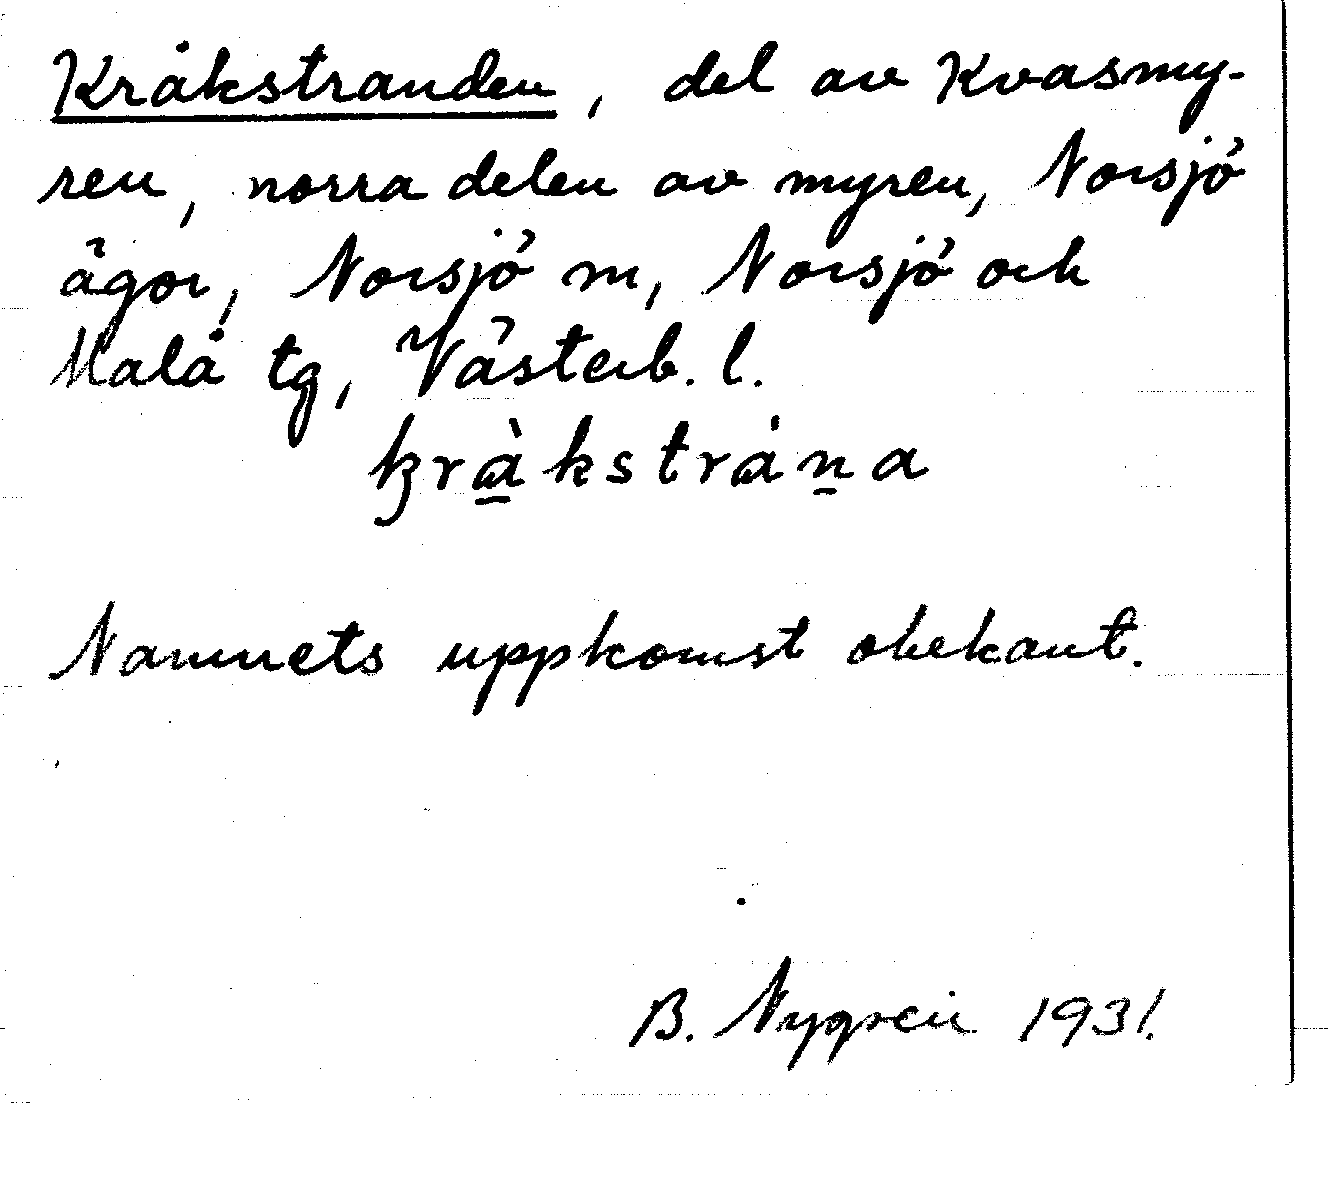 Kråkstranden, del av Kvasmy-
ren, norra delen av myren, Norsjö
ägor, Norsjö m, Norsjö och
Malå tg, Västerb. l.
krà̱kstráṉa
Namnets uppkomst obekant.
B. Nygren 1931.